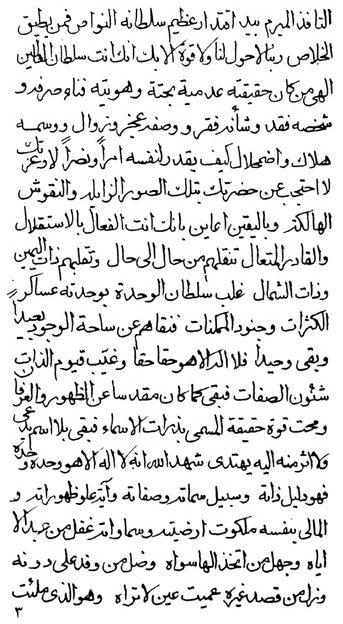 النافذ المبرم بید اقتدار عظیم سلطانه النواصی فمن یطیق
الخلاص ربنا لاحول لنا ولا قوة الا بك انك انت سلطان السلاطین
الهی من کان حقیقته عدمیة بحتة وهویته فناء صرف و
شخصه فقد وشأنه فقر ووصفه عجز وزوال ووسمه
هلاك واضمحلال کیف یقدر لنفسه امراً ونصراً لاوعزتك
لا احتجبی عن حضرتك بتلك الصور الزایله والنقوش
الهالکة وبالیقین اعاین بانك انت الفعال بالاستقلال
والقادر المتعال تنقلهم من حال الی حال وتقلبهم ذات الیمین
وذات الشمال غلب سلطان الوحدة بوحدته عساکر
الکثرات وجنود الممکنات فنفاهم عن ساحة الوجود بعیداً
وبقی وحیداً فلا اله الا هو حقا حقا وغیب قیوم الذات
شئون الصفات فبقی کما کان مقدسا عن الظهور والعرفا
ومحت قوة حقیقة المسمی بذرات الاسماء فبقی بلا اسم یدعی
ولا اثر منه الیه یهتدی شهد الله انه لا اله الا هو وحده وحده
فهو دلیل ذاته وسبیل سماته وصفاته وآیة علو ظهوراته و
المالی بنفسه ملکوت ارضیته وسماواته غفل من عبد الا
ایاه وجهل من اتخذ الها سواه وضل من وفد علی دونه
ونزل من قصد غیره عمیت عین لا تراه وهو الذی ملئت
۳